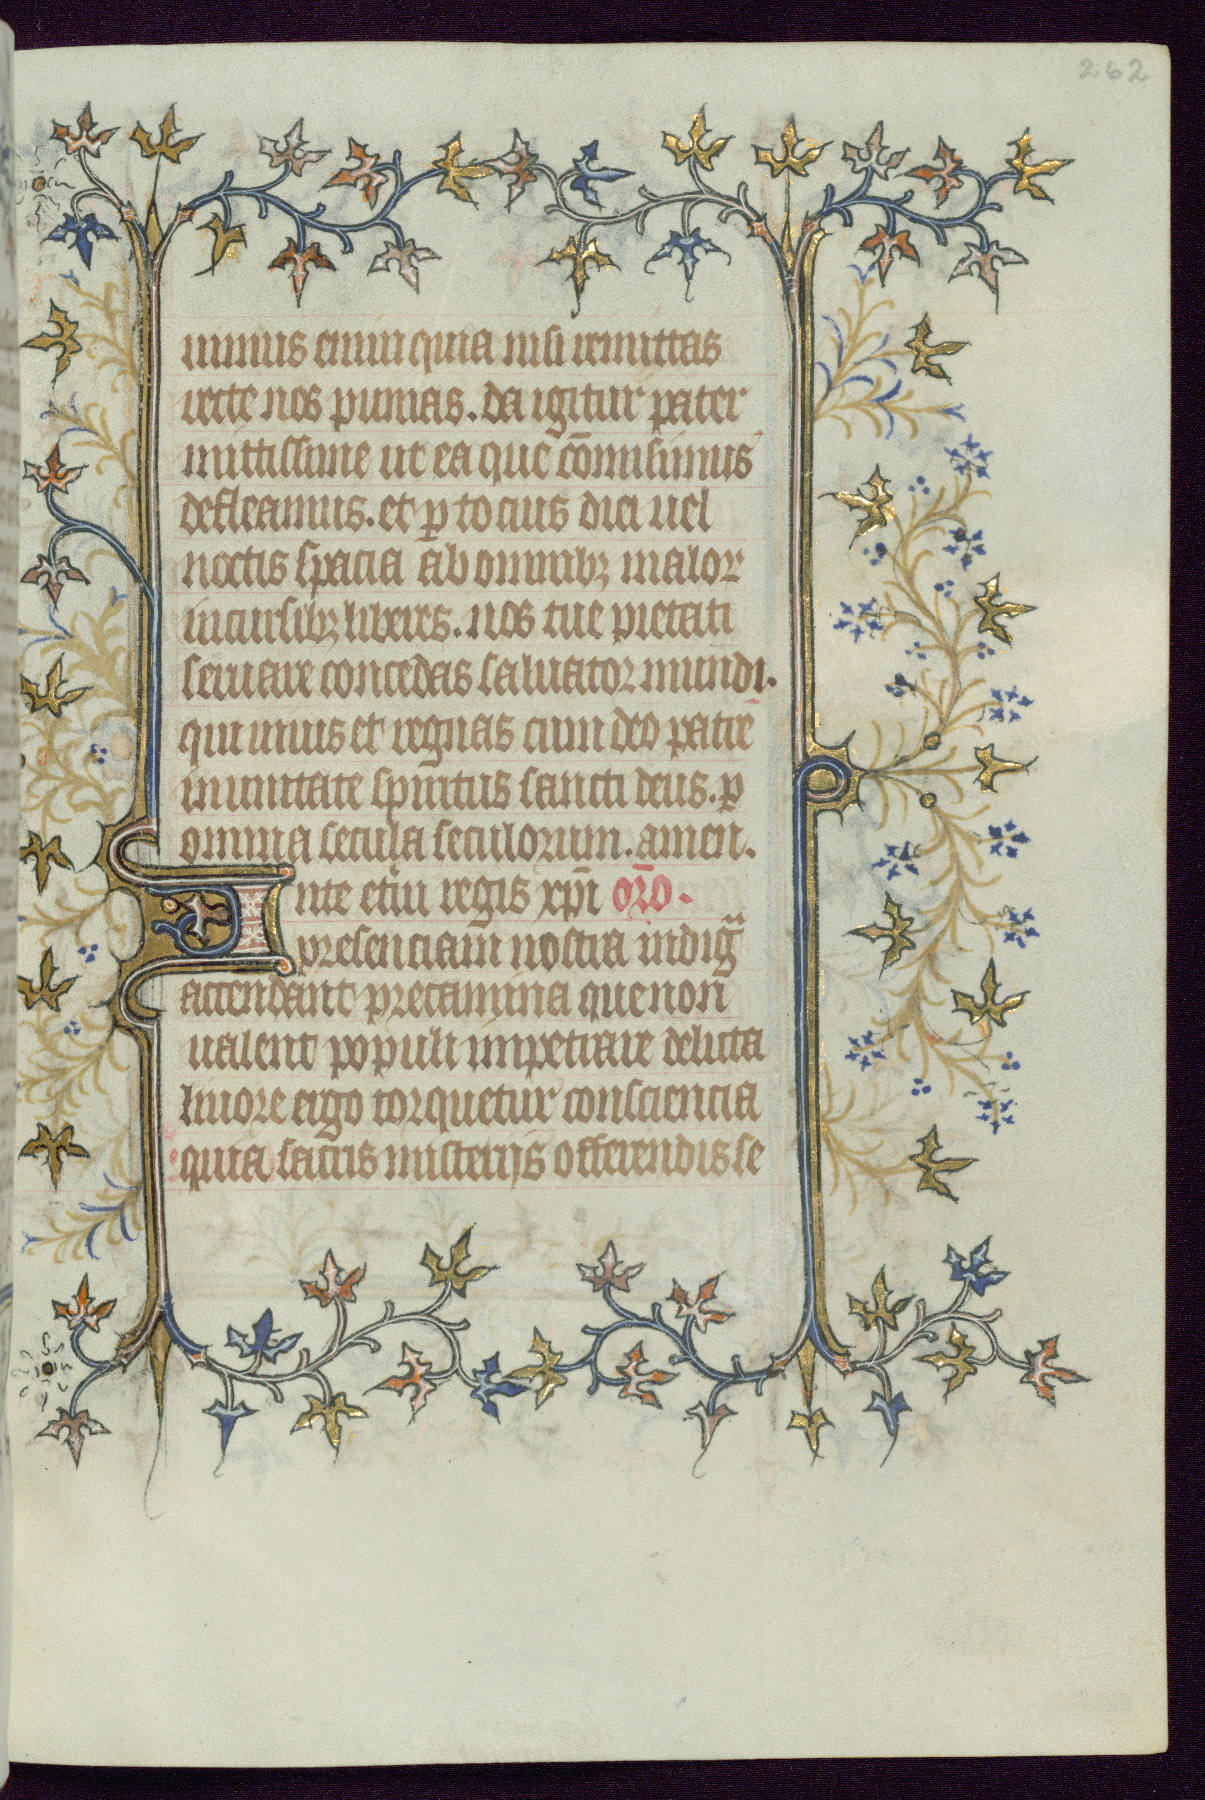 262
uimus enim quia nisi remittas
recte nos punias. da igitur pater
mittissime ut ea que co̅misimus
defleamus. et ꝑ tocius diei uel
noctis spacia ab omnibꝫ malor
incursibꝫ liberes. nos tue pietati
seruare concedas saluator mundi.
qui uiuis et regnas cum deo patre
in unitate spiritus sancti deus. ꝑ
omnia secula seculorum. amen.
Ante et̅ni regis xp̅i or̅o.
presenciam nostra indig̅
accendant precamina que non
ualent populi impetrare delicta
liuore ergo torquetur consciencia
quia sacris misterijs offerendis se